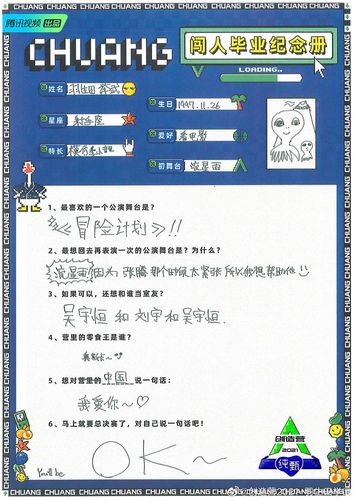 腾讯视频 出品
CHUANG
闯人毕业纪念册
LOADING..
姓名
生日 1997.11.26
星座 射手座
爱好 看电影
特长
初舞台 流星雨
1、最喜欢的一个公演舞台是？
《冒险计划》!!
2、最想回去再表演一次的公演舞台是？为什么？
流星雨 因为 张腾 那个时候太紧张 所以我想帮助他
3、如果可以，还想和谁当室友？
吴宇恒 和 刘宇 和 吴宇恒.
4、营里的零食王是谁？
5、想对营里的中国说一句话：
我爱你~♡
6、马上就要总决赛了，对自己说一句话吧！
You'll be
OK~
创造营
2021
纯甄
CHUANG CHUANG CHUANG CHUANG CHUANG CHUANG